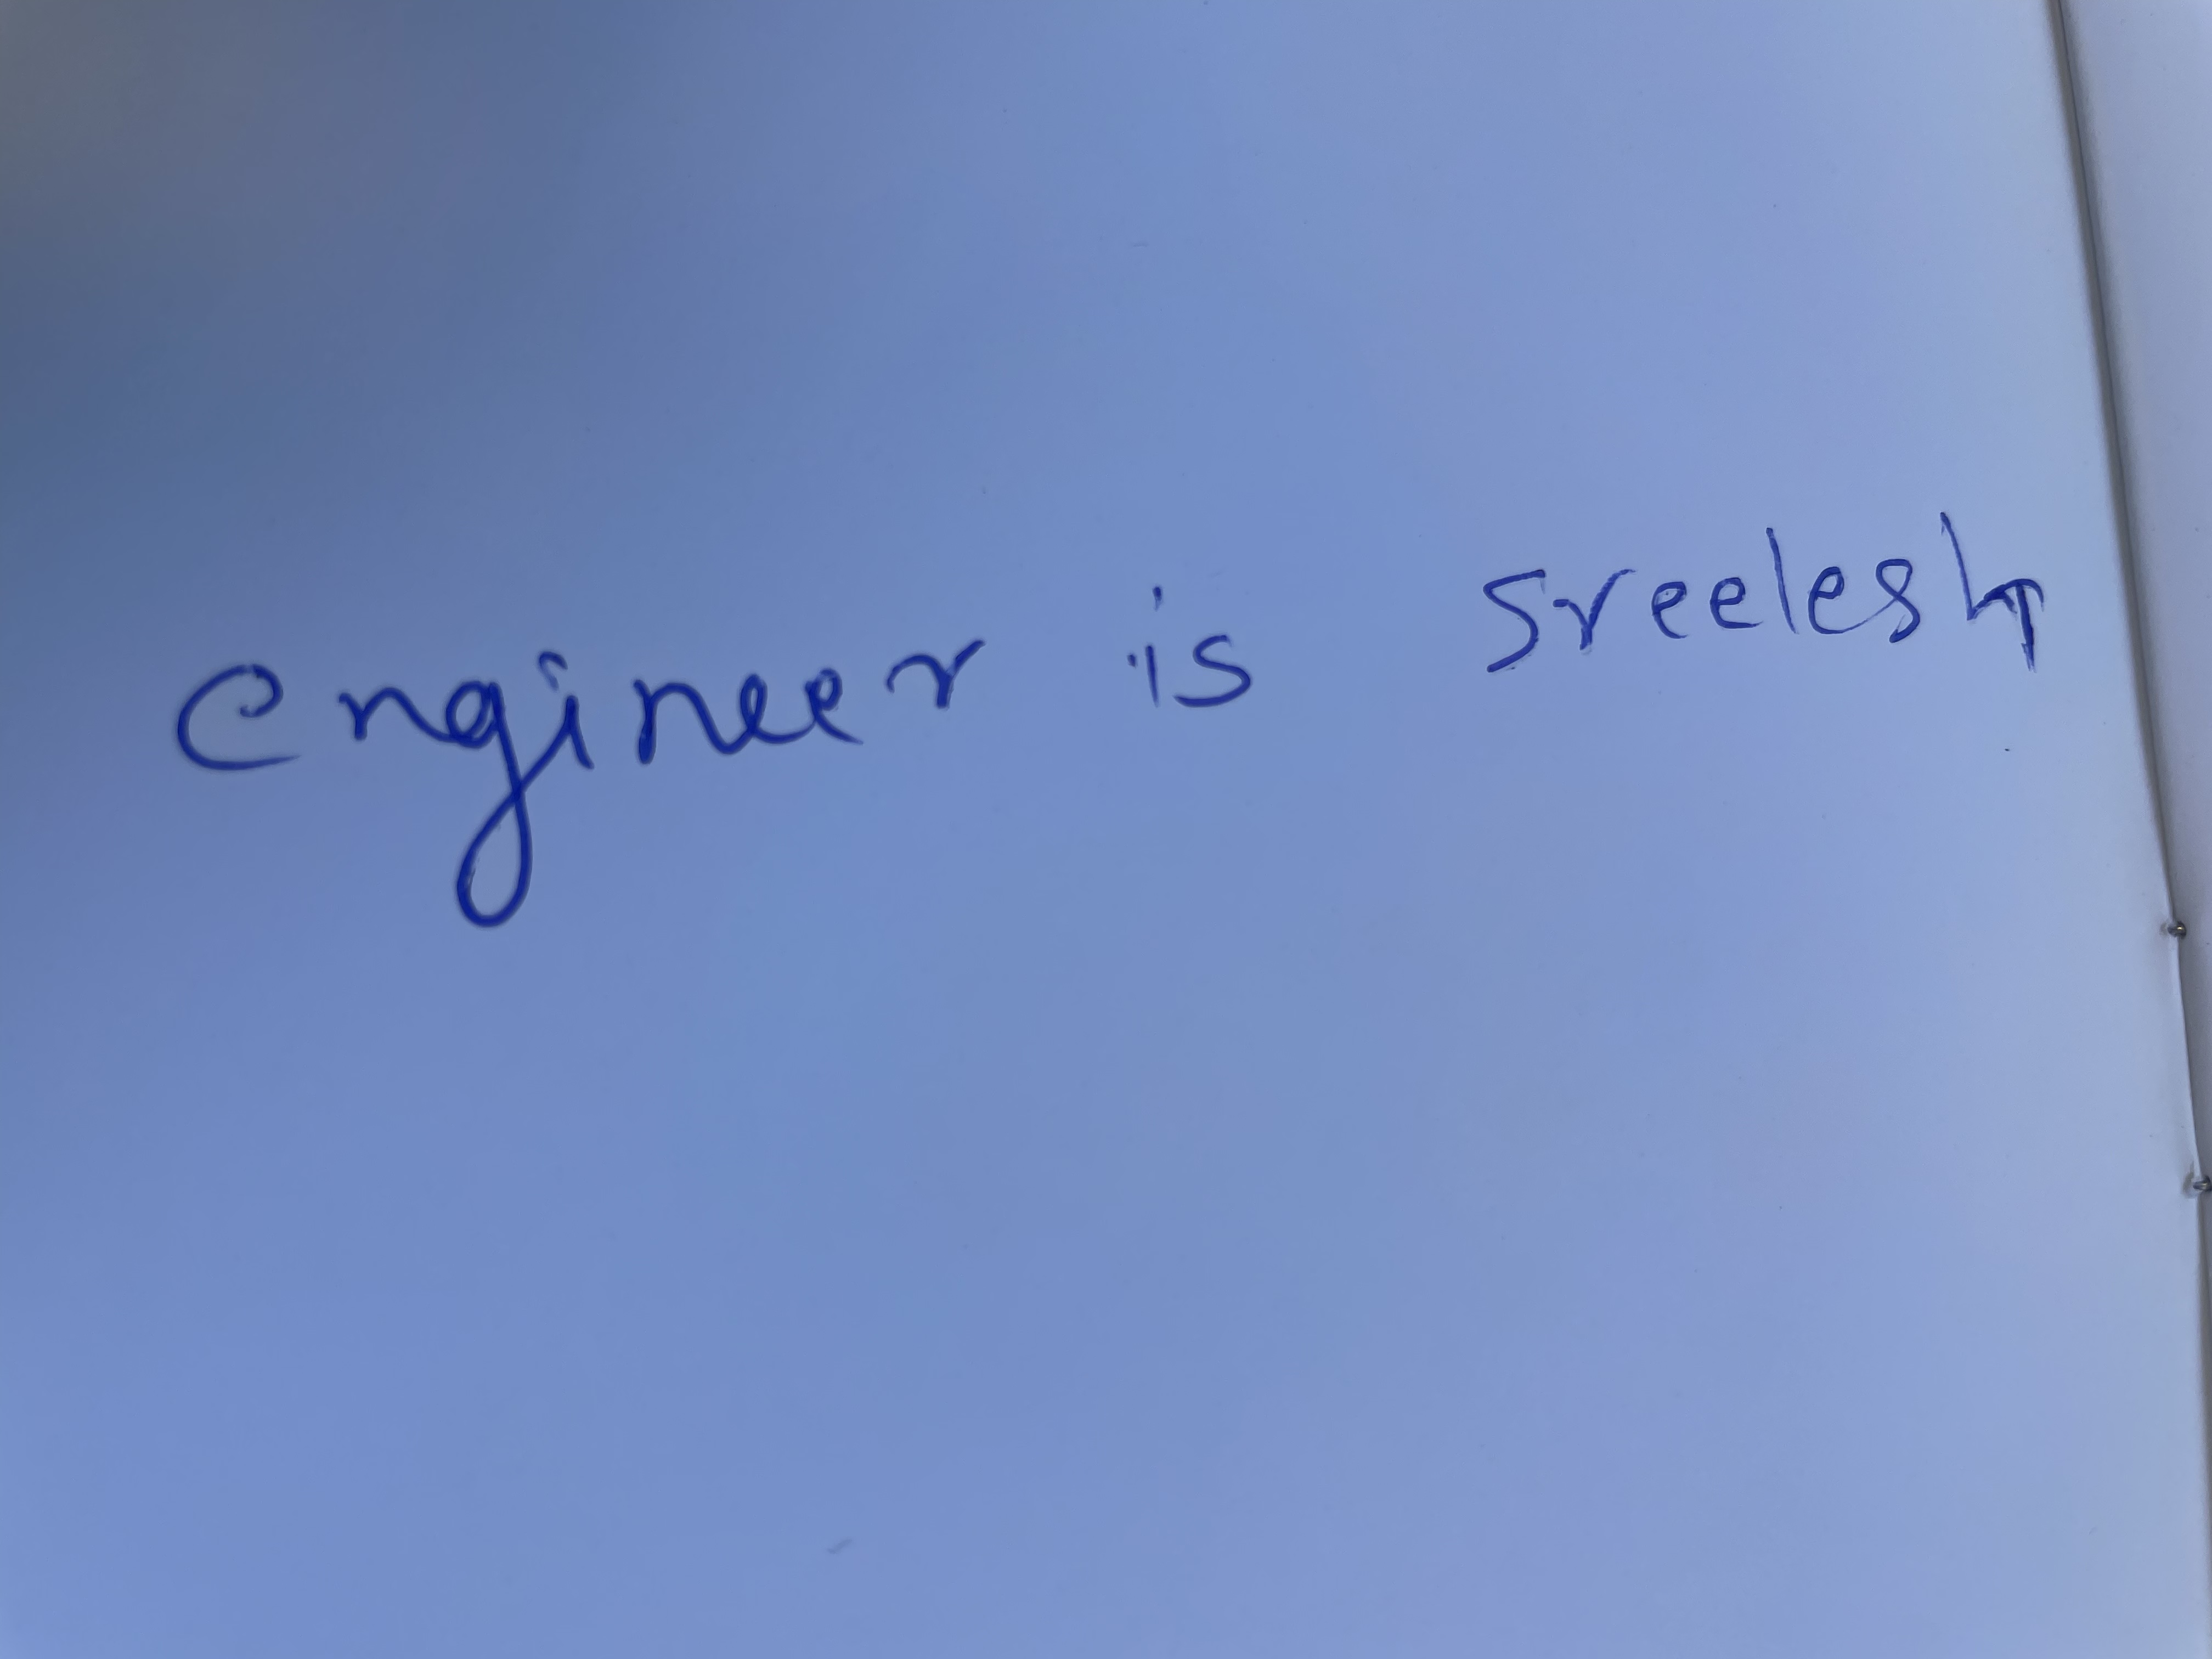 engineer is sreelesh